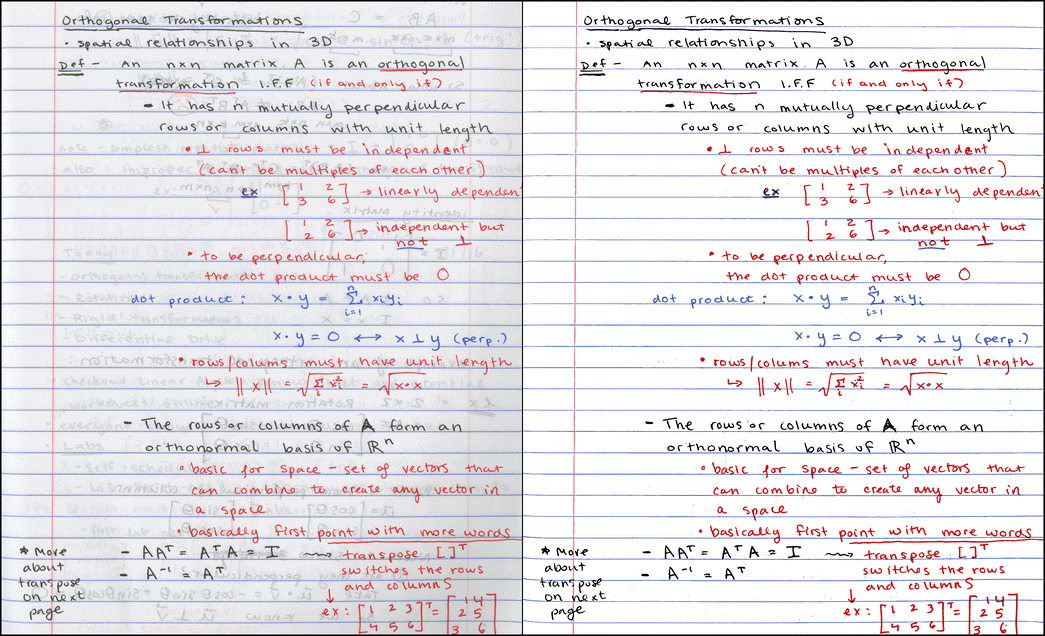 Orthogonal Transformations
• spatial relationships in 3D
Def - An n×n matrix A is an orthogonal
transformation I.F.F (if and only if)
- It has n mutually perpendicular
rows or columns with unit length
• ⊥ rows must be independent
(can't be multiples of each other)
ex [1 2 3 6] → linearly dependent
[1 2 2 6] → independent but
not ⊥
• to be perpendicular,
the dot product must be 0
dot product: x • y = n Σ i=1 xiyi
x • y = 0 ↔ x ⊥ y (perp.)
• rows/colums must have unit length
↳ || x || = √Σi xi² = √x•x
- The rows or columns of A form an
orthonormal basis of ℝⁿ
• basic for space - set of vectors that
can combine to create any vector in
a space
• basically first point with more words
* More about transpose on next page
- AAᵀ = AᵀA = I ⟿ transpose [ ]ᵀ
- A⁻¹ = Aᵀ
switches the rows
and columns
↓
ex: [1 2 3 4 5 6]ᵀ = [1 4 2 5 3 6]
Orthogonal Transformations
• spatial relationships in 3D
Def - An n×n matrix A is an orthogonal
transformation I.F.F (if and only if)
- It has n mutually perpendicular
rows or columns with unit length
• ⊥ rows must be independent
(can't be multiples of each other)
ex [1 2 3 6] → linearly dependent
[1 2 2 6] → independent but
not ⊥
• to be perpendicular,
the dot product must be 0
dot product: x • y = n Σ i=1 xiyi
x • y = 0 ↔ x ⊥ y (perp.)
• rows/colums must have unit length
↳ || x || = √Σi xi² = √x•x
- The rows or columns of A form an
orthonormal basis of ℝⁿ
• basic for space - set of vectors that
can combine to create any vector in
a space
• basically first point with more words
* More about transpose on next page
- AAᵀ = AᵀA = I ⟿ transpose [ ]ᵀ
- A⁻¹ = Aᵀ
switches the rows
and columns
↓
ex: [1 2 3 4 5 6]ᵀ = [1 4 2 5 3 6]